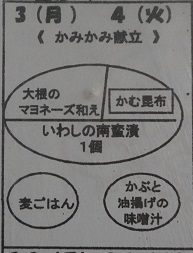 3（月）　4（火）
《 かみかみ献立 》
大根の
マヨネーズ和え
かむ昆布
いわしの南蛮漬
1個
麦ごはん
かぶと
油揚げの
味噌汁